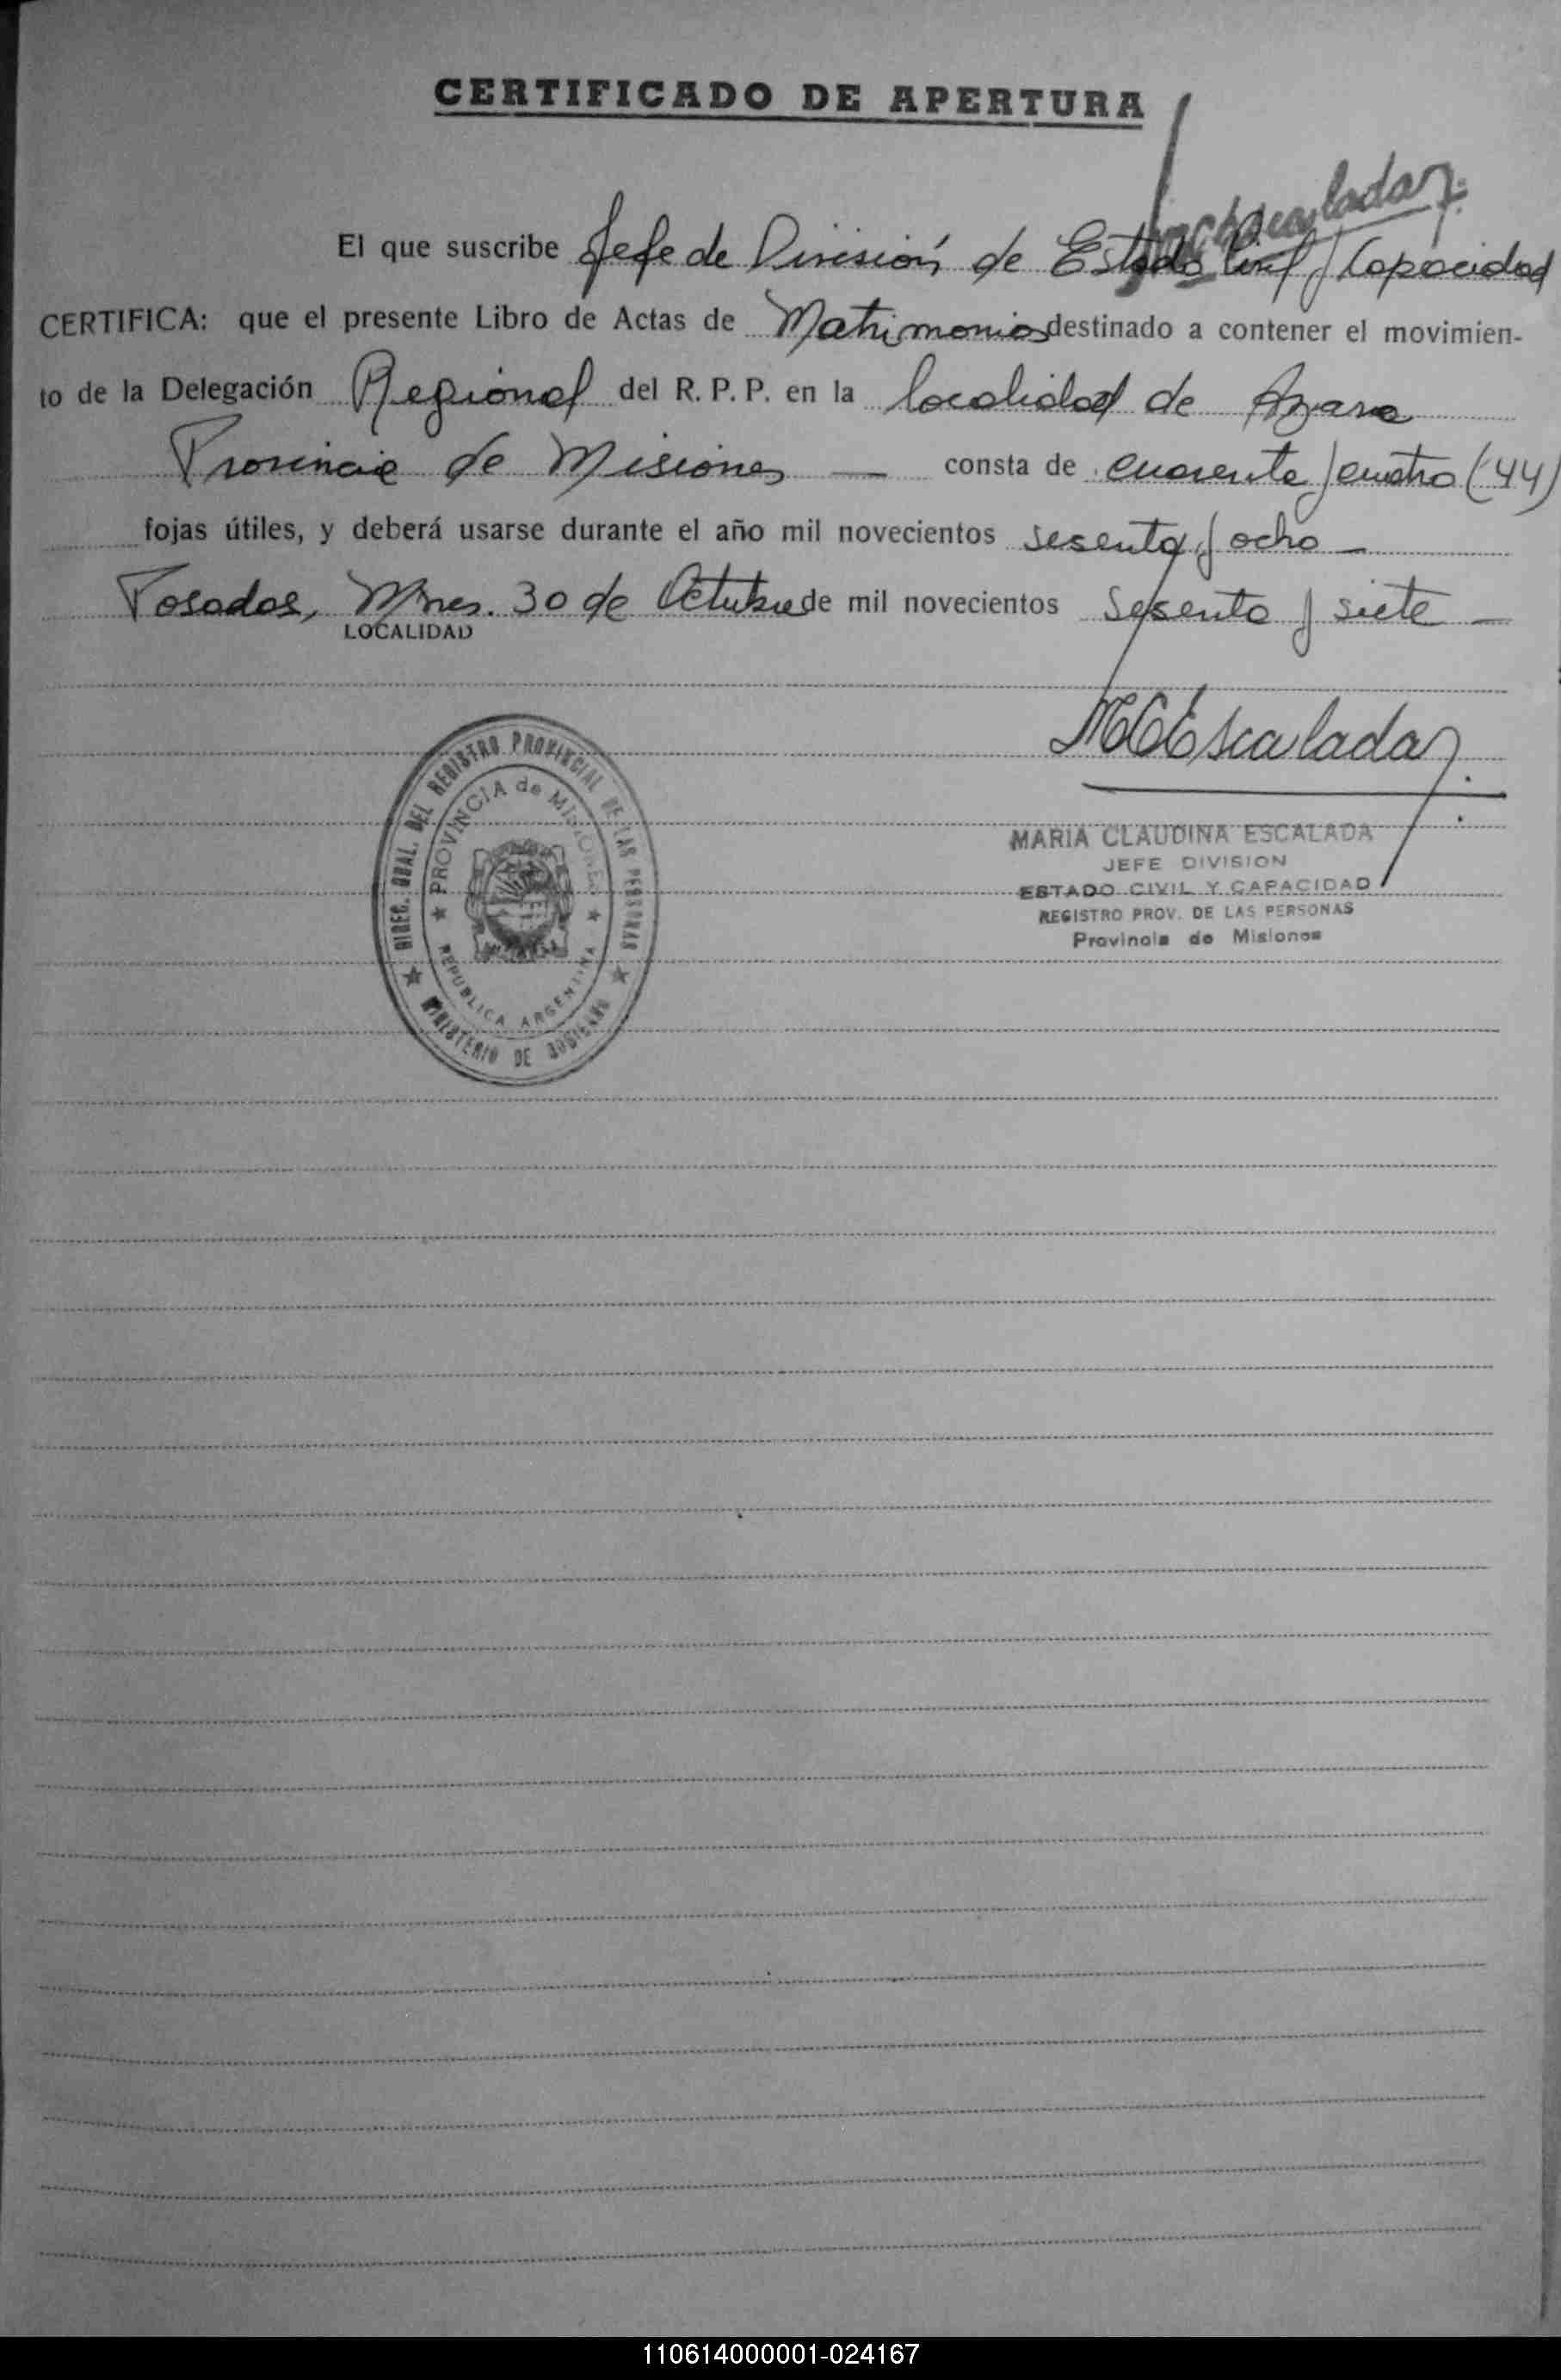 CERTIFICADO DE APERTURA
MCEscalada
El que suscribe Jefe de División de Estado Civil y Capacidad
CERTIFICA: que el presente Libro de Actas de Matrimonios destinado a contener el movimien-
to de la Delegación Regional del R. P. P. en la localidad de Azara
Provincia de Misiones — consta de cuarenta y cuatro (44)
fojas útiles, y deberá usarse durante el año mil novecientos sesenta y ocho —
Posadas, Mnes. 30 de Octubre de mil novecientos sesenta y siete —
LOCALIDAD
MCEscalada
DIREC. GRAL. DEL REGISTRO PROVINCIAL DE LAS PERSONAS
PROVINCIA de MISIONES
REPUBLICA ARGENTINA
MINISTERIO DE GOBIERNO
MARIA CLAUDINA ESCALADA
JEFE DIVISION
ESTADO CIVIL Y CAPACIDAD
REGISTRO PROV. DE LAS PERSONAS
Provincia de Misiones
110614000001-024167